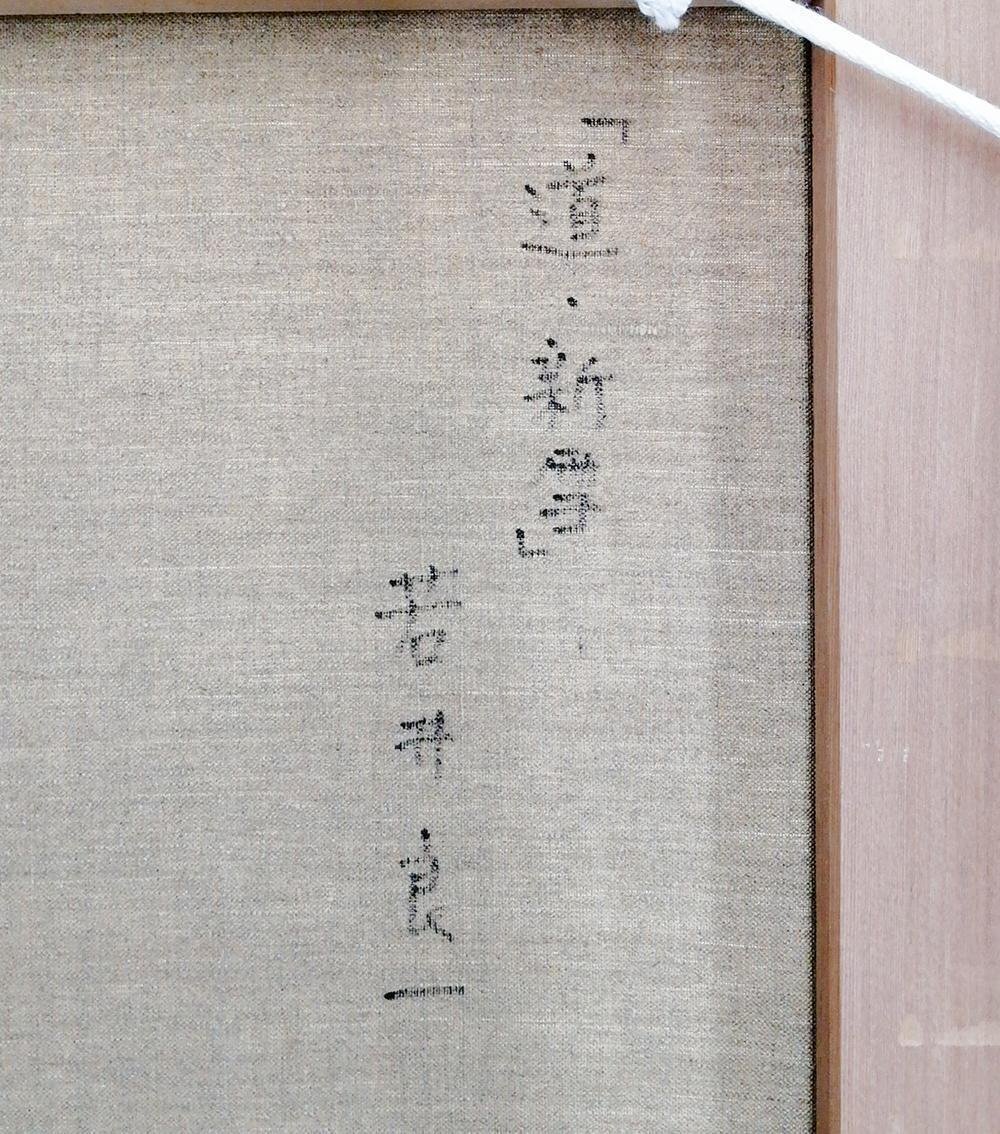 「道・新雪」
若井良一